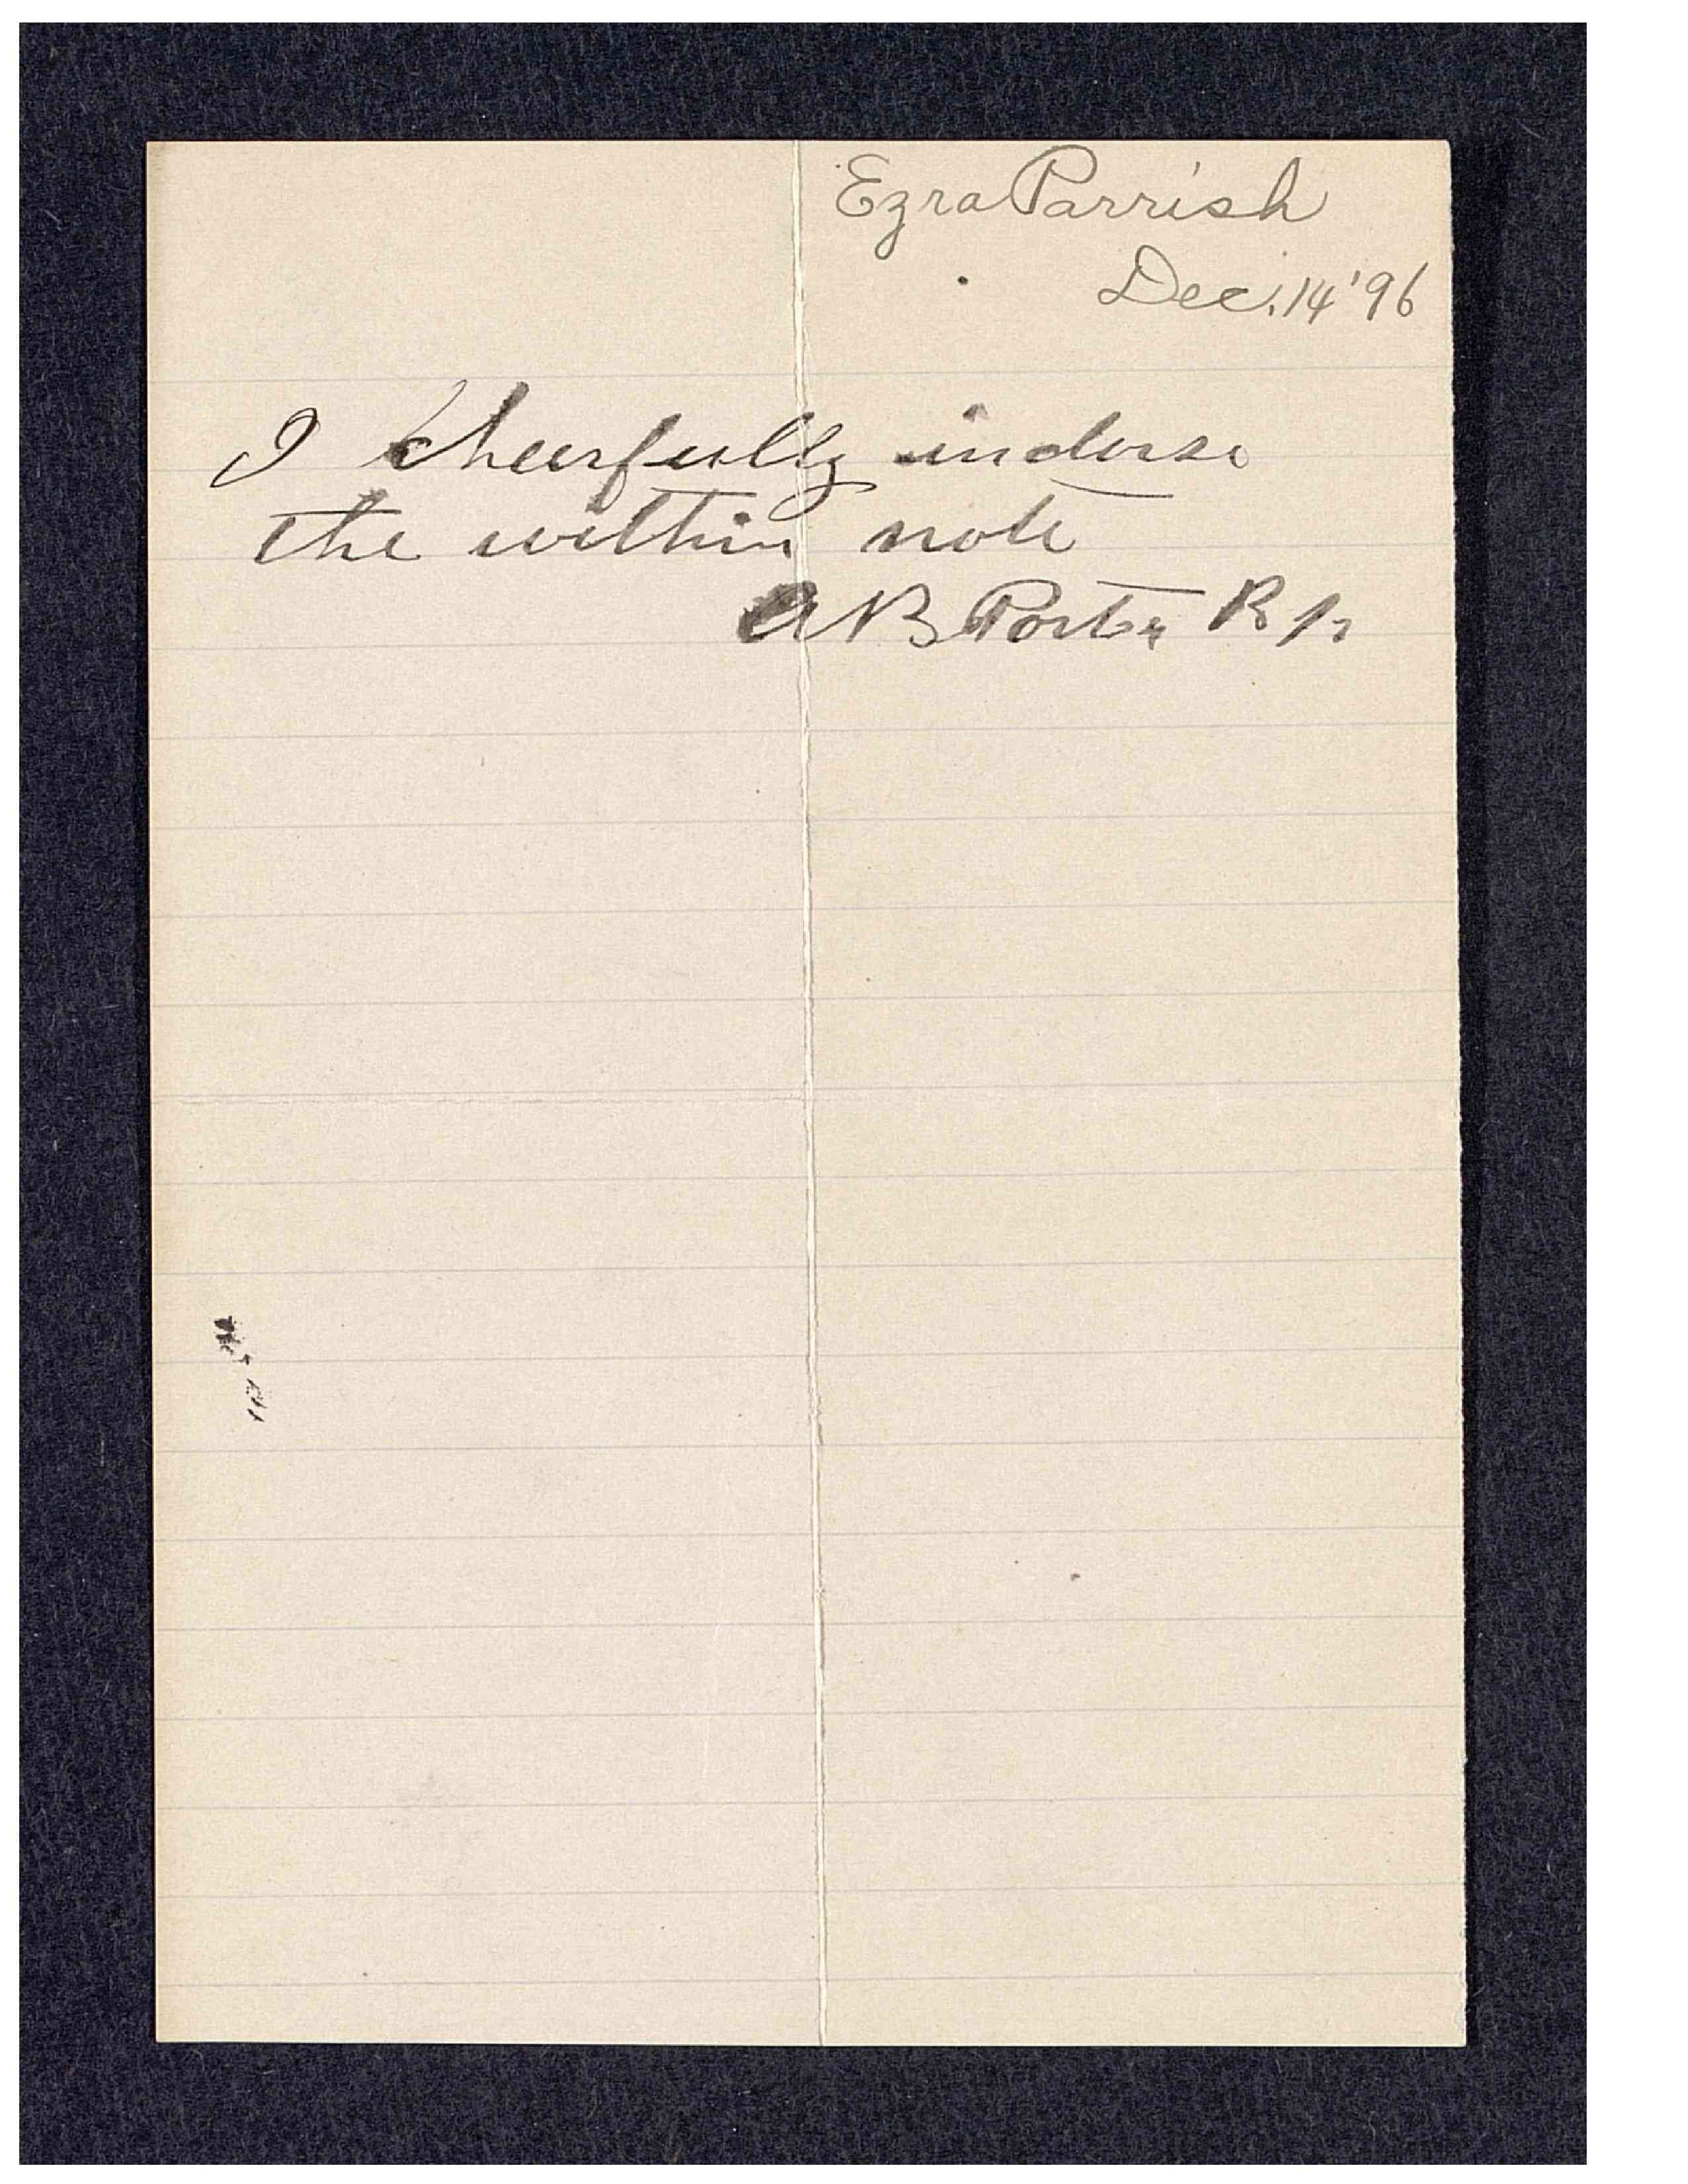 Ezra Parrish
Dec. 14 '96
I cheerfully indorse
the within note
A B Porter